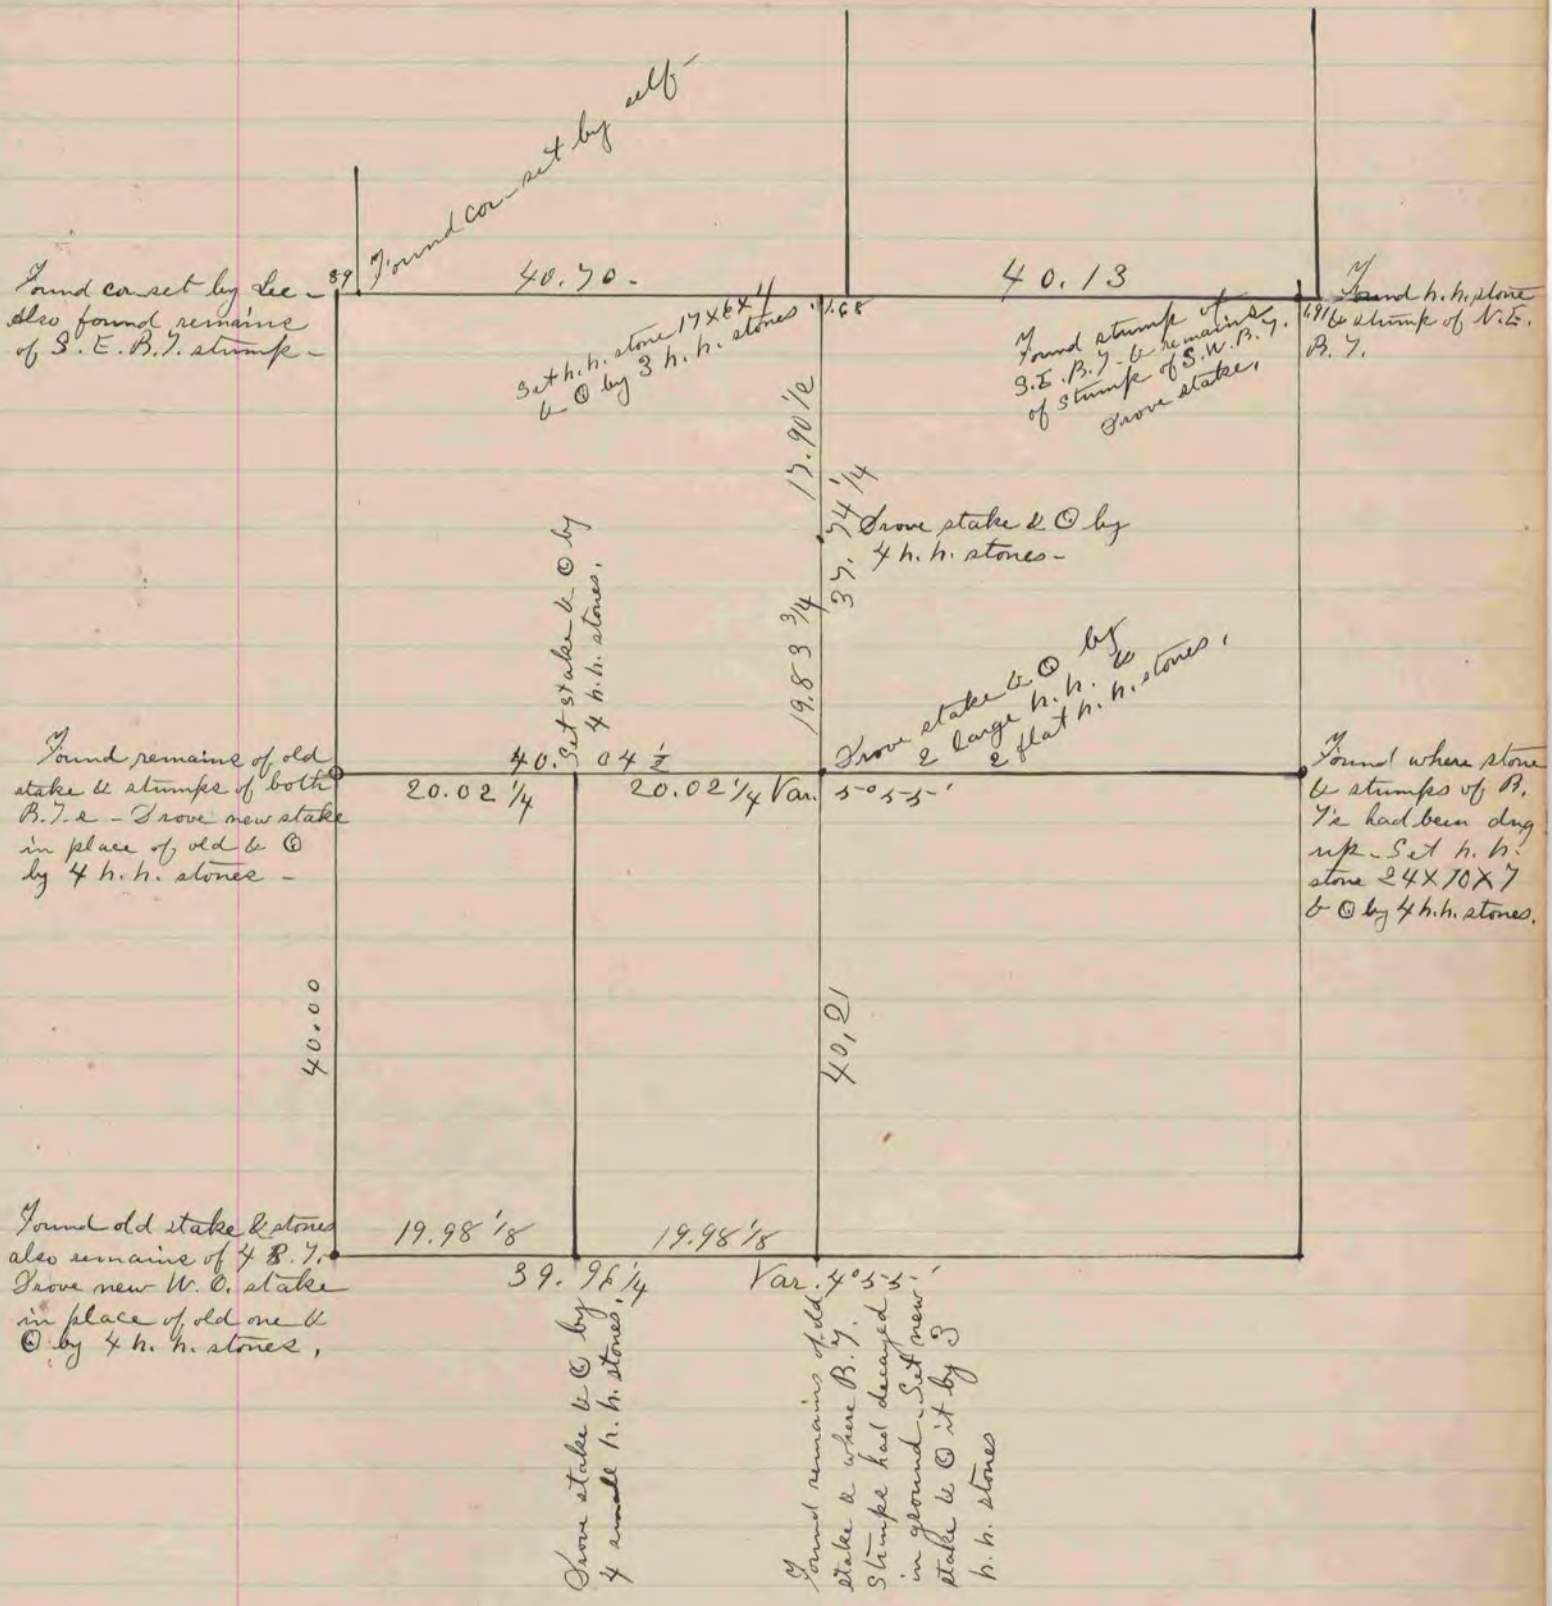 Found cor set by self-
Found cor set by Lee -
Also found remains
of S. E. B. T. stump -
89
40.70.
40.13
Set h. h. stone 17X6X4
& ⊙ by 3 h. h. stones.
1.68
Found stump of
S. E. B. T. & remains
of stump of S. W. B. T.
Drove stake.
1.91
Found h. h. stone
& stump of N. E.
B. T.
17.90 1/2
37.74 1/4
Drove stake & ⊙ by
4 h. h. stones -
19.83 3/4
Set stake & ⊙ by
4 h. h. stones.
Drove stake & ⊙ by
2 large h. h. &
2 flat h. h. stones.
Found remains of old
stake & stumps of both
B. T. s - Drove new stake
in place of old & ⊙
by 4 h. h. stones -
40.04 1/2
20.02 1/4
20.02 1/4 Var. 5° 55'
Found where stone
& stumps of B.
T's had been dug
up - Set h. h.
stone 24X10X7
& ⊙ by 4 h. h. stones.
40.00
40.21
Found old stake & stones
also remains of 4 B. T.
Drove new W. O. stake
in place of old one &
⊙ by 4 h. h. stones.
19.98 1/8
19.98 1/8
39.96 1/4
Var. 4° 55'
Drove stake & ⊙ by
4 small h. h. stones.
Found remains of old
stake & where B. T.
Stumps had decayed
in ground - Set new
stake & ⊙ it by 3
h. h. stones